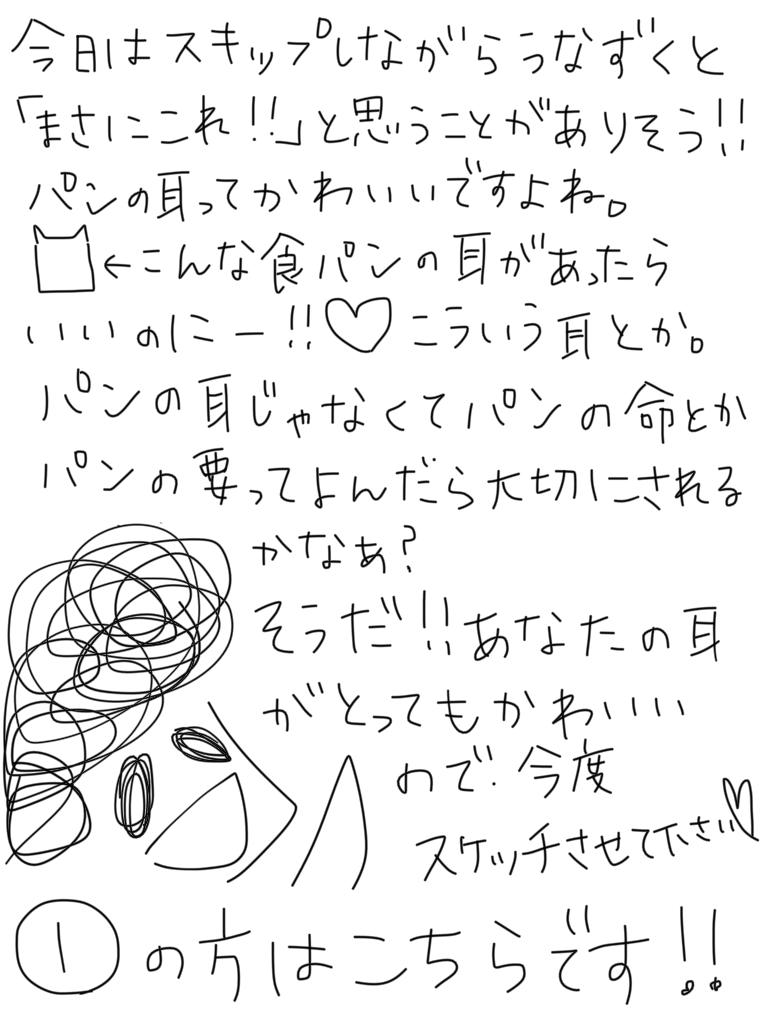 今日はスキップしながらうなずくと
「まさにこれ!!」と思うことがありそう!!
パンの耳ってかわいいですよね。
←こんな食パンの耳があったら
いいのにー!!♡こういう耳とか。
パンの耳じゃなくてパンの命とか
パンの要ってよんだら大切にされる
かなぁ?
そうだ!!あなたの耳
がとってもかわいい
ので今度
スケッチさせて下さい♡
①の方はこちらです!!